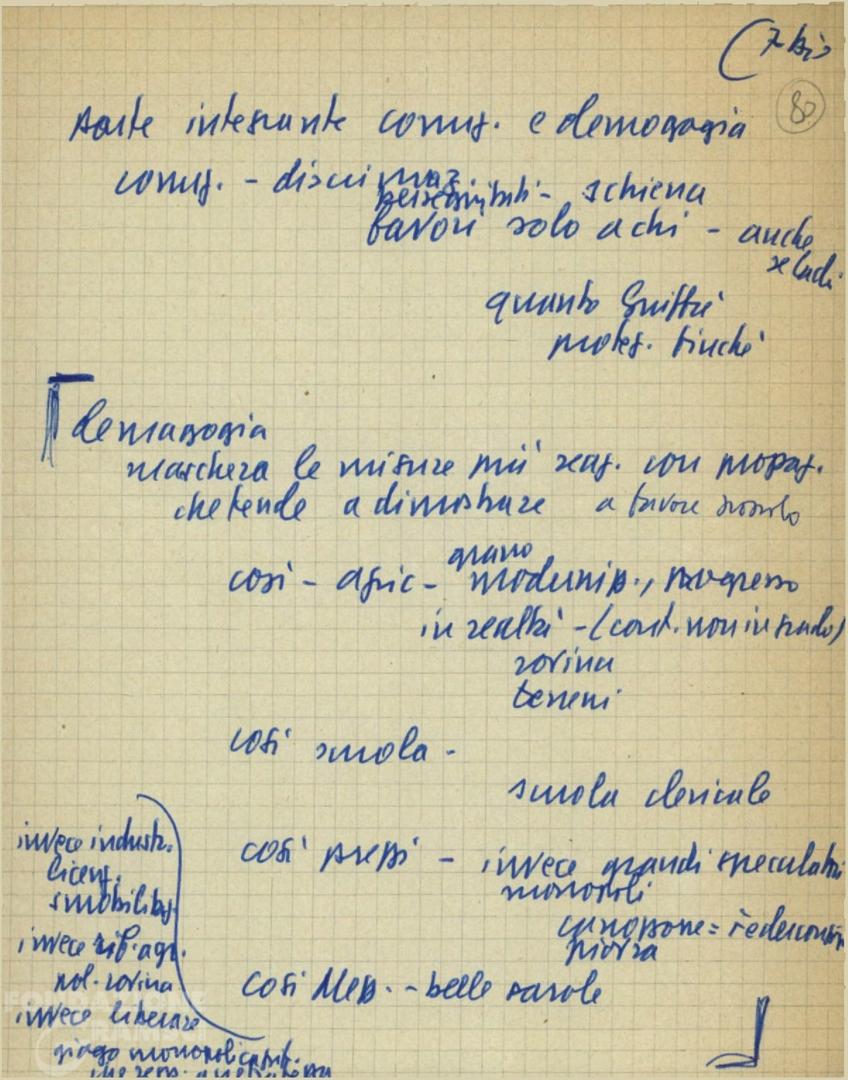 (7 bis
80
parte integrante corruz. e demagogia
corruz. - discriminaz.
perseguitati - schiena
favori solo a chi - anche
se ladri
quanto Giuffré
proteg. finché
demagogia
maschera le misure più reaz. con propag.
che tende a dimostrare a favore popolo
grano
così - agric - moderniz., progresso
in realtà - (cont. non in grado)
rovina
terreni
così scuola -
scuola clericale
così prezzi - invece grandi speculatori
monopoli
canapone = Federconsorzi
così Mezz. - belle parole
invece industr.
licenz.
smobilitaz.
invece rif. agr.
pol. rovina
invece liberare
giogo monopoli